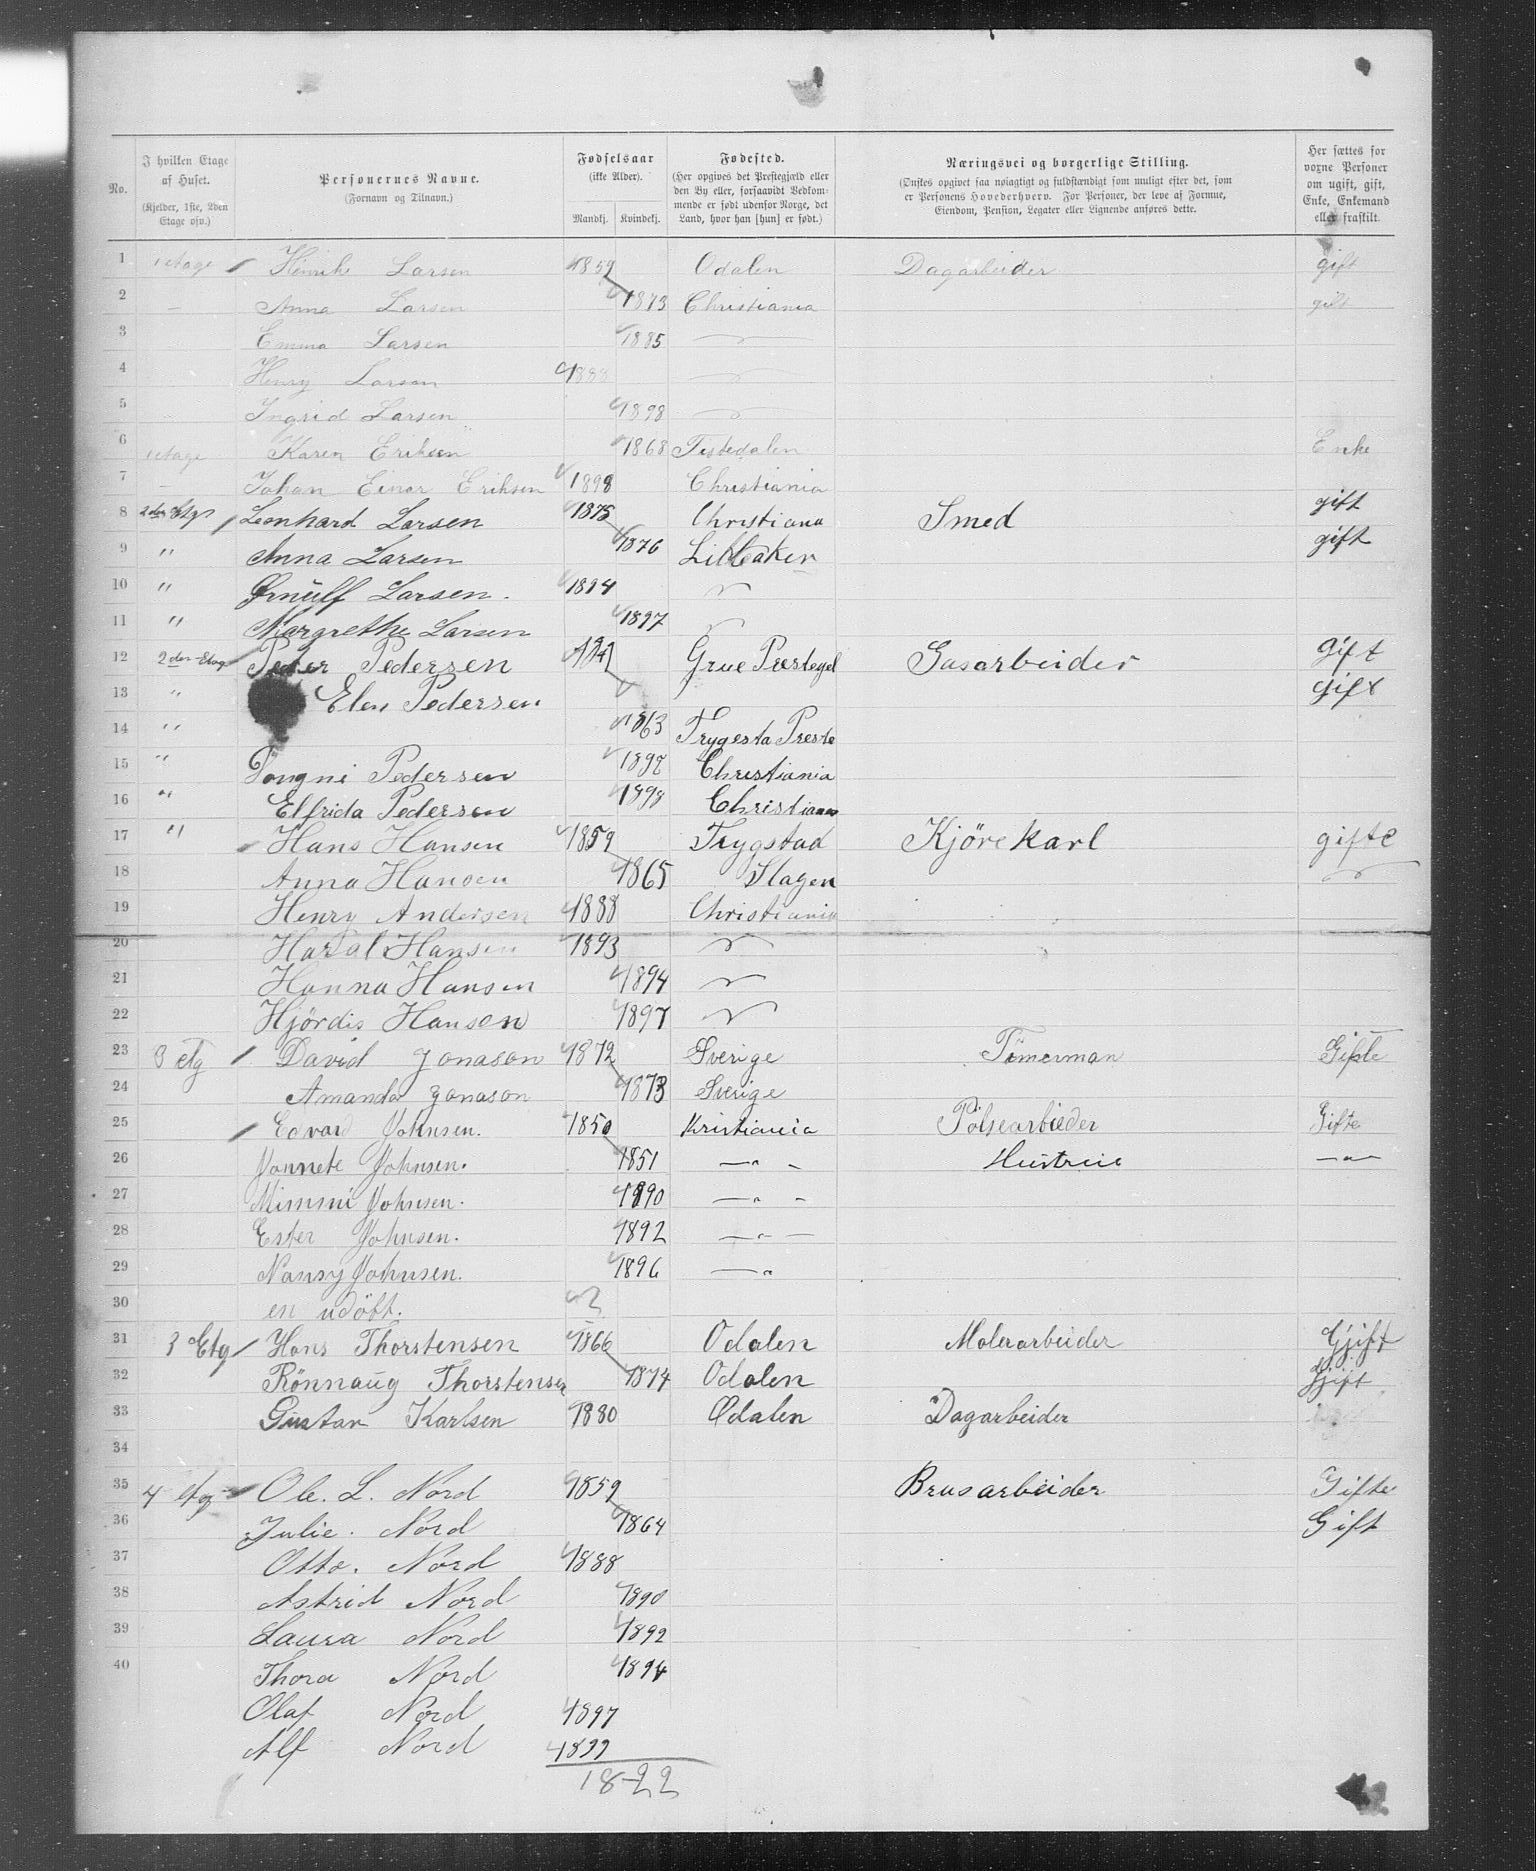 No.
I hvilken Etage af Huset. (Kjelder, 1ste, 2den Etage osv.)
Personernes Navne. (Fornavn og Tilnavn.)
Fødselsaar (ikke Alder). Mandkj. Kvindekj.
Fødested. (Her opgives det Prestegjæld eller den By eller, forsaavidt Vedkommende er født udenfor Norge, det Land, hvor han [hun] er født.)
Næringsvei og borgerlige Stilling. (Ønskes opgivet saa nøiagtigt og fuldstændigt som muligt efter det, som er Personens Hovederhverv. For Personer, der leve af Formue, Eiendom, Pension, Legater eller Lignende anføres dette.
Her sættes for voxne Personer om ugift, gift, Enke, Enkemand eller fraskilt.
1 1 etage Henrik Larsen 1859 Odalen Dagarbeider gift
2 — Anna Larsen 1873 Christiania gift
3 Emma Larsen 1885
4 Henry Larsen 1888
5 Ingrid Larsen 1898
6 1 etage Karen Eriksen 1868 Tistedalen Enke
7 — Johan Einar Eriksen 1898 Christiania
8 2den Etg Leonhard Larsen 1875 Christiana Smed gift
9 " Anna Larsen 1876 Lilleaker gift
10 " Ørnulf Larsen. 1894
11 " Margrethe Larsen 1897
12 2den Etag Peder Pedersen Grue Gasarbeider gift
13 " Elen Pedersen gift
14 " 1863 Trygesta Preste
15 " Pedersen 1892 Christiania
16 " Elfrida Pedersen 1898 Christiania
17 " Hans Hansen 1859 Trygstad Kjörekarl gifte
18 Anna Hansen 1865 Slagen
19 Henry Andersen 1888 Christiania
20 Haral Hansen 1893
21 Hanna Hansen 1894
22 Hjördis Hansen 1897
23 3 etg David Jonason 1872 Sverige Tömerman Gifte
24 Amanda Jonason 1873 Sverige
25 Edvard Johnsen. 1850 Kristiania Pölsearbieder Gifte
26 Jonnete Johnsen. 1851 — " — Hustrue — " —
27 Mimmi Johnsen. 1890 — " —
28 Ester Johnsen. 1892 — " —
29 Nansy Johnsen. 1896 — "
30 en udöbt. ?
31 3 Etg Hans Thorstensen 1866 Odalen Molerarbeider Gjift
32 Rönnaug Thorstensen 1874 Odalen Gjift
33 Gustav Karlsen 1880 Ødalen Dagarbeider
34
35 4 etg Ole. L. Nord 1859 Brusarbeider Gifte
36 Julie. Nord 1864 Gift
37 Otto. Nord 1888
38 Astrid Nord 1890
39 Laura Nord 1892
40 Thora Nord 1894
Olaf Nord 1897
Alf Nord 1899
18-22